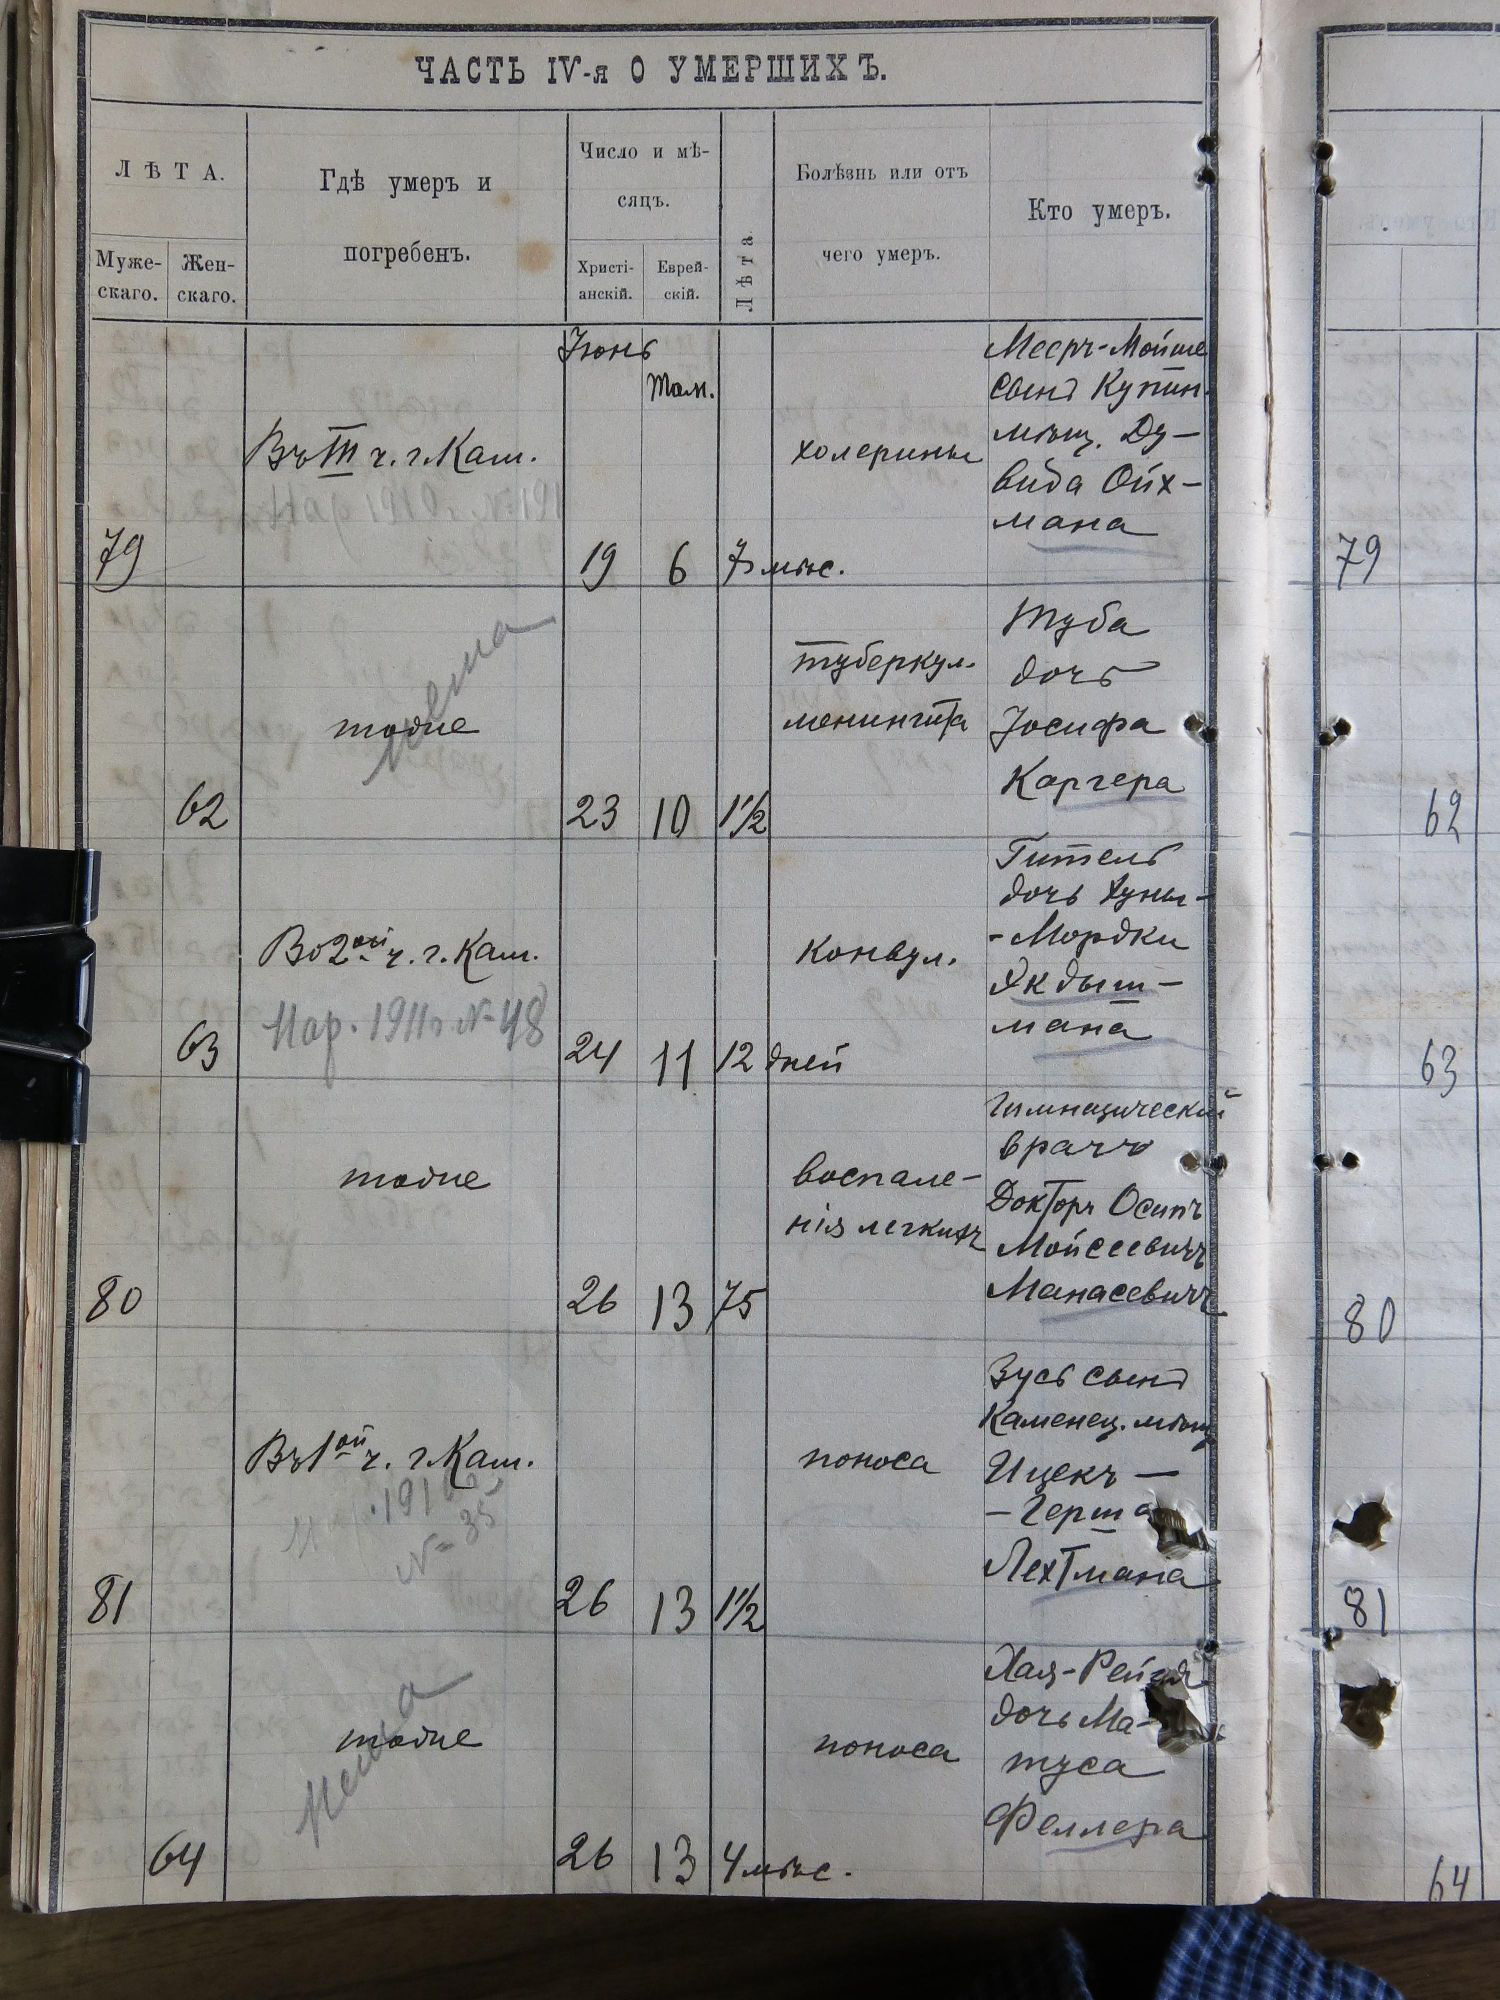 ЧАСТЬ IV-я О УМЕРШИХЪ.
ЛѢТА.
Муже-
скаго.
Жен-
скаго.
Гдѣ умеръ и
погребенъ.
Число и мѣ-
сяцъ.
Христі-
анскій.
Еврей-
скій.
Лѣта
Болѣзнь или отъ
чего умеръ.
Кто умеръ.
Іюнь
Там.
Въ III ч. г. Кам.
79
19
6
7 мѣс.
холерины
Мееръ-Мойше
сынъ Купин.
мѣщ. Ду-
вида Ойх-
мана
79
тоже
62
23
10
1 1/2
туберкул.
менингита
Туба
дочь
Іосифа
Каргера
62
Во 2ой ч. г. Кам.
Нар. 1911 г № 48
63
24
11
12 дней
конвул.
Гитель
дочь Хуны-
-Мордки
Якдыш-
мана
63
тоже
80
26
13
75
воспале-
нія легкихъ
Гимназическій
врачъ
Докторъ Осипъ
Мойсеевичъ
Манасевичъ
80
Въ 1ой ч. г. Кам.
№ 35
81
26
13
1 1/2
поноса
Зусь сынъ
Каменец. мѣщ
Ицекъ-
-Герша
Лехтмана
81
тоже
64
26
13
4 мѣс.
поноса
Хая-Рейзя
дочь Ма-
туса
Феллера
64